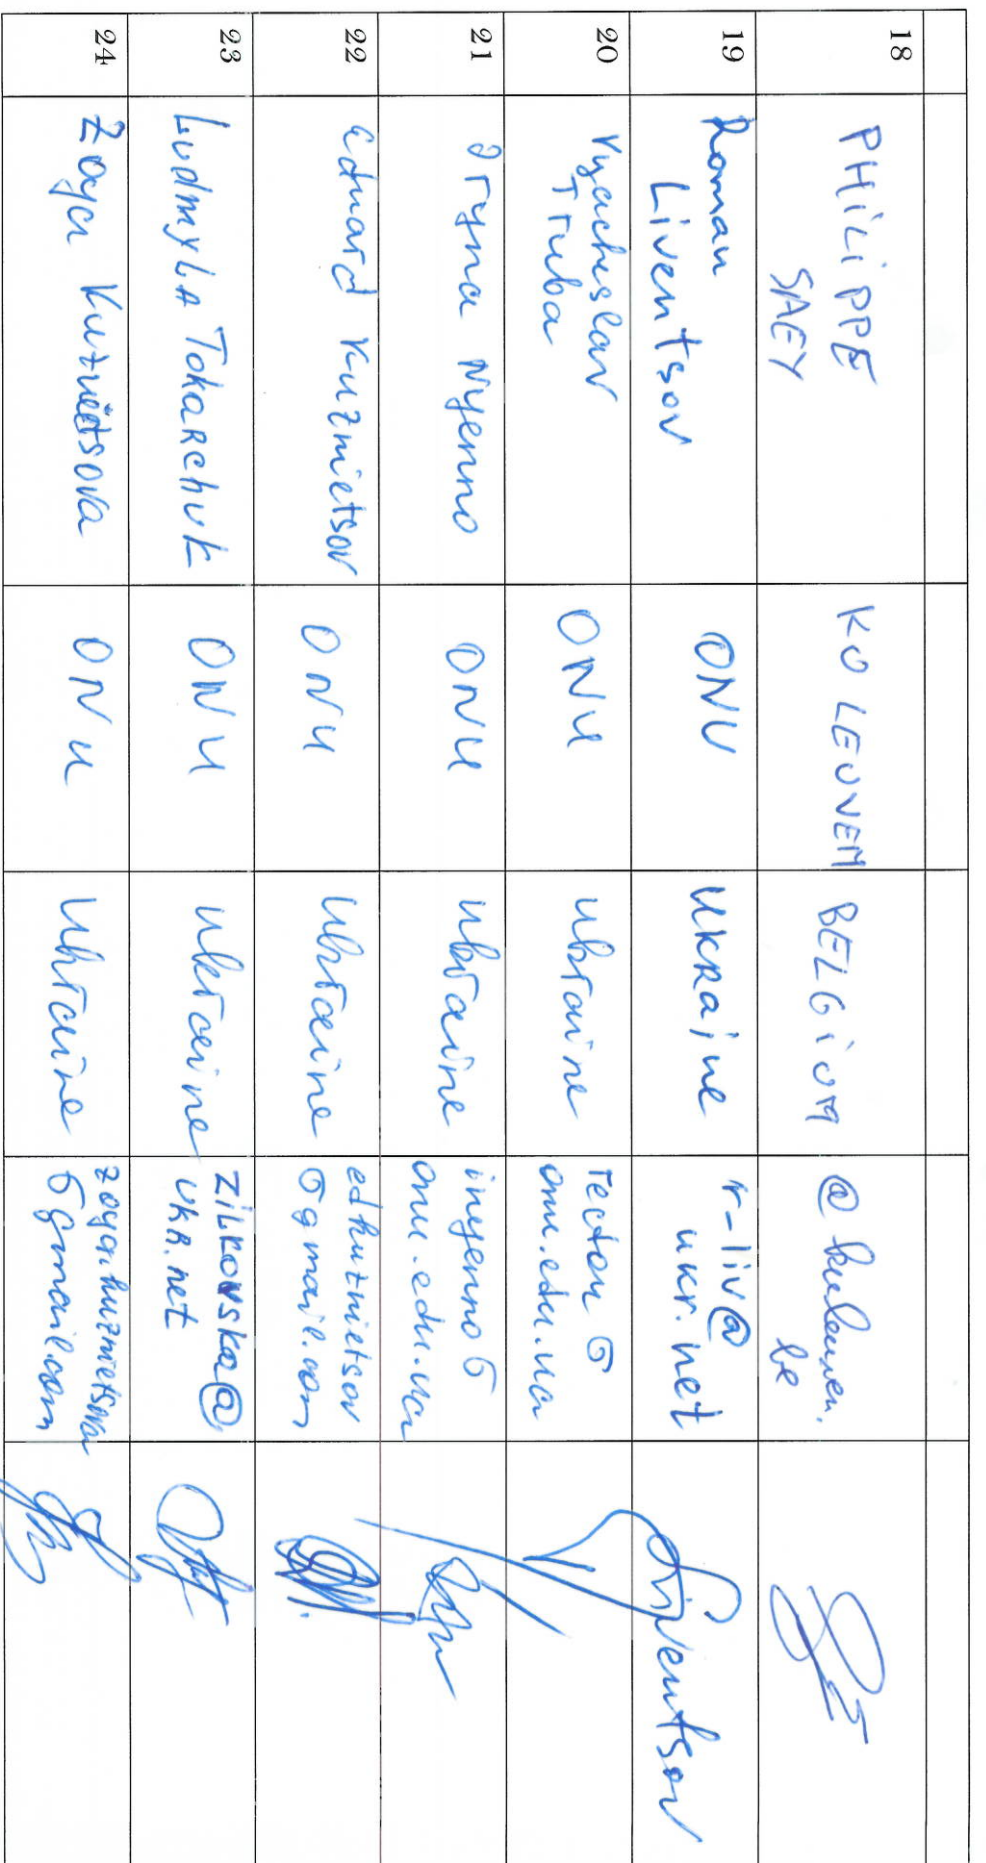 18 PHILIPPE SAEY KU LEUVEN BELGIUM @kuleuven.be
19 Roman Liventsov ONU Ukraine r-liv@ukr.net Liventsov
20 Vyacheslav Truba ONU Ukraine rector@onu.edu.ua
21 Iryna Nyenno ONU Ukraine inyenno@onu.edu.ua
22 Eduard Kuznietsov ONU Ukraine edkuznietsov@gmail.com
23 Ludmyla Tokarchuk ONU Ukraine zilkovska@ukr.net
24 Zoya Kuznietsova ONU Ukraine zoya.kuznietsova@gmail.com